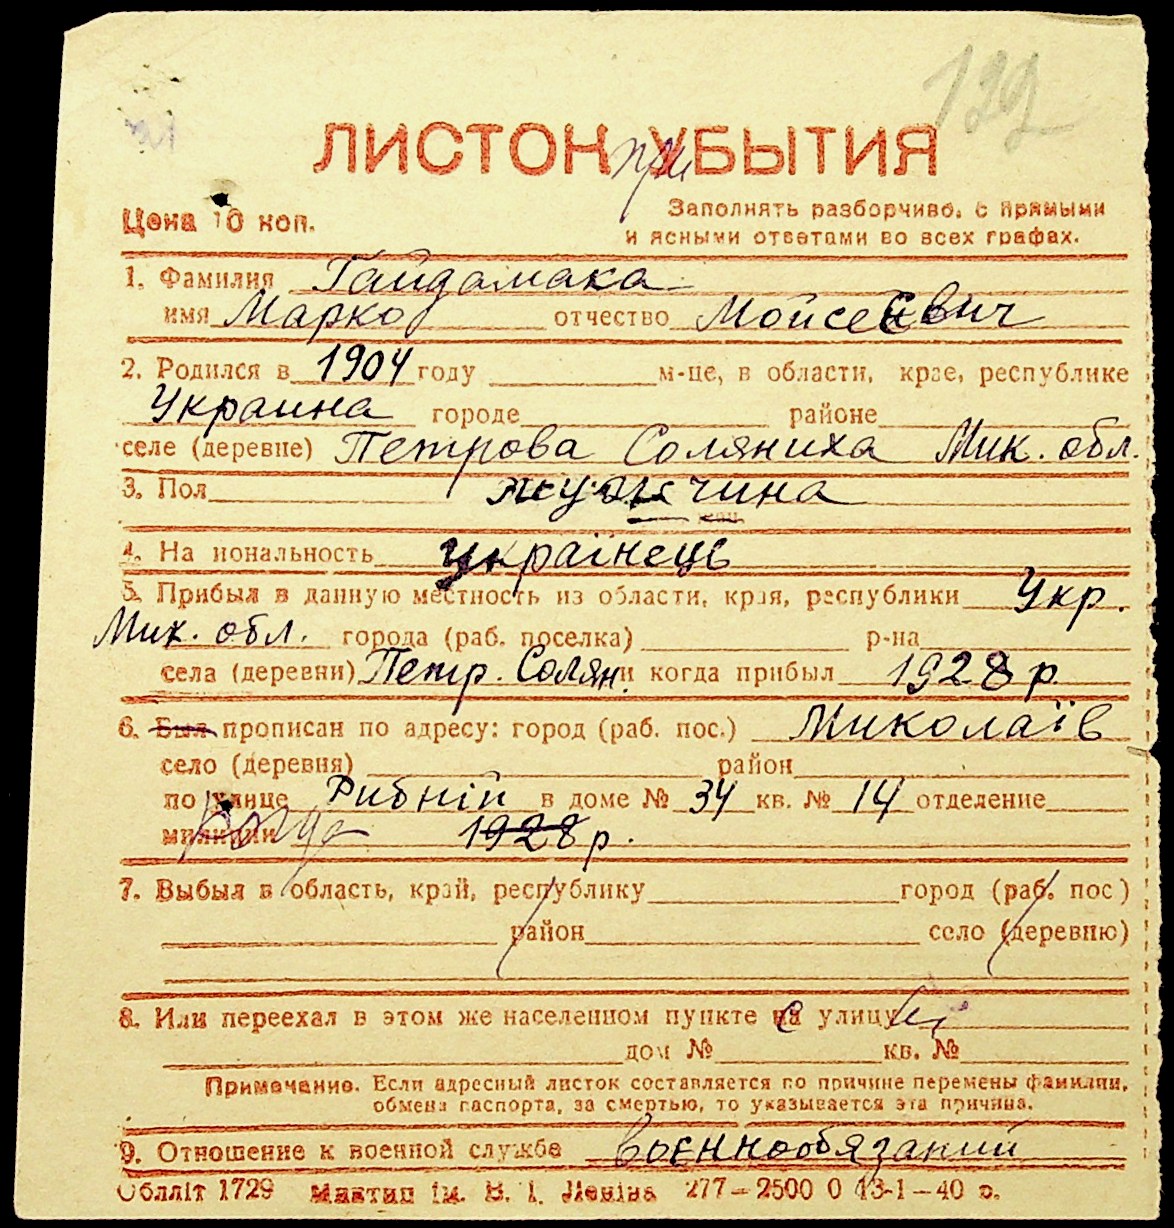 199
ЛИСТОК при УБЫТИЯ
Цена 10 коп.
Заполнять разборчиво, с прямыми
и ясными ответами во всех графах.
1. Фамилия Гайдамака
имя Марко отчество Мойсеевич
2. Родился в 1904 году м-це, в области, крае, республике
Украина городе районе
селе (деревне) Петрова Соляниха Мик. обл.
3. Пол мужчина
4. На иональность українець
5. Прибыл в данную местность из области, края, республики Укр.
Мик. обл. города (раб. поселка) р-на
села (деревни) Петр. Солян. и когда прибыл 1928 р.
6. Был прописан по адресу: город (раб. пос.) Миколаїв
село (деревня) район
по улице Рибній в доме № 34 кв. № 14 отделение
милиции когда 1928 р.
7. Выбыл в область, край, республику город (раб. пос)
район село (деревню)
8. Или переехал в этом же населенном пункте на улицу
дом № кв. №
Примечание. Если адресный листок составляется по причине перемены фамилии,
обмена паспорта, за смертью, то указывается эта причина.
9. Отношение к военной службе воєннообязаний
Облліт 1729 ім. В. І. Леніна 277—2500 0 13-1—40 р.